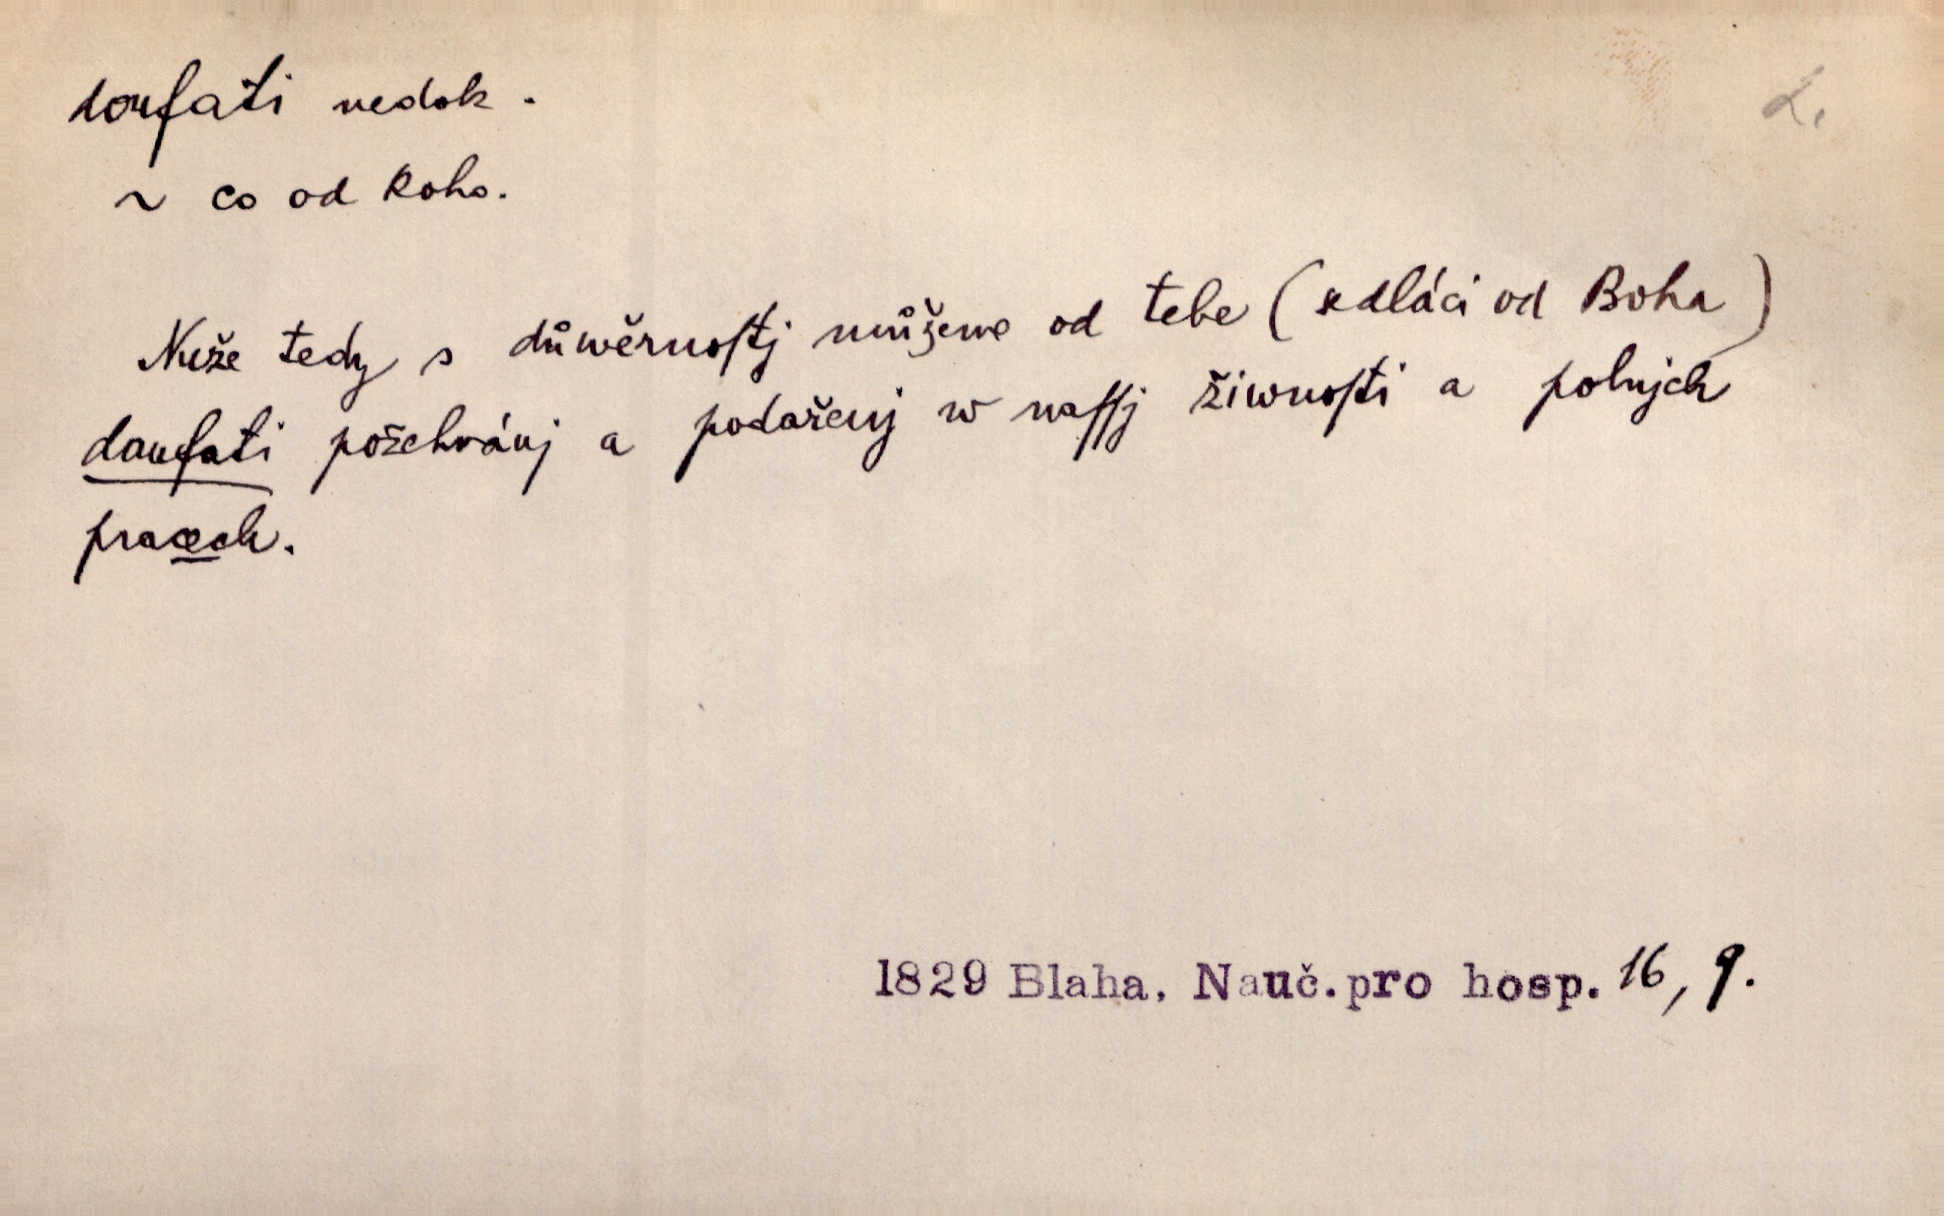 doufati nedok.
2.
~ co od koho.
Nuže tedy s důwěrnoſtj můžeme od tebe (sedláci od Boha)
daufati požehnánj a podařenj w naſſj žiwnoſti a polnjch
pracech.
1829 Blaha, Nauč. pro hosp. 16, 9.